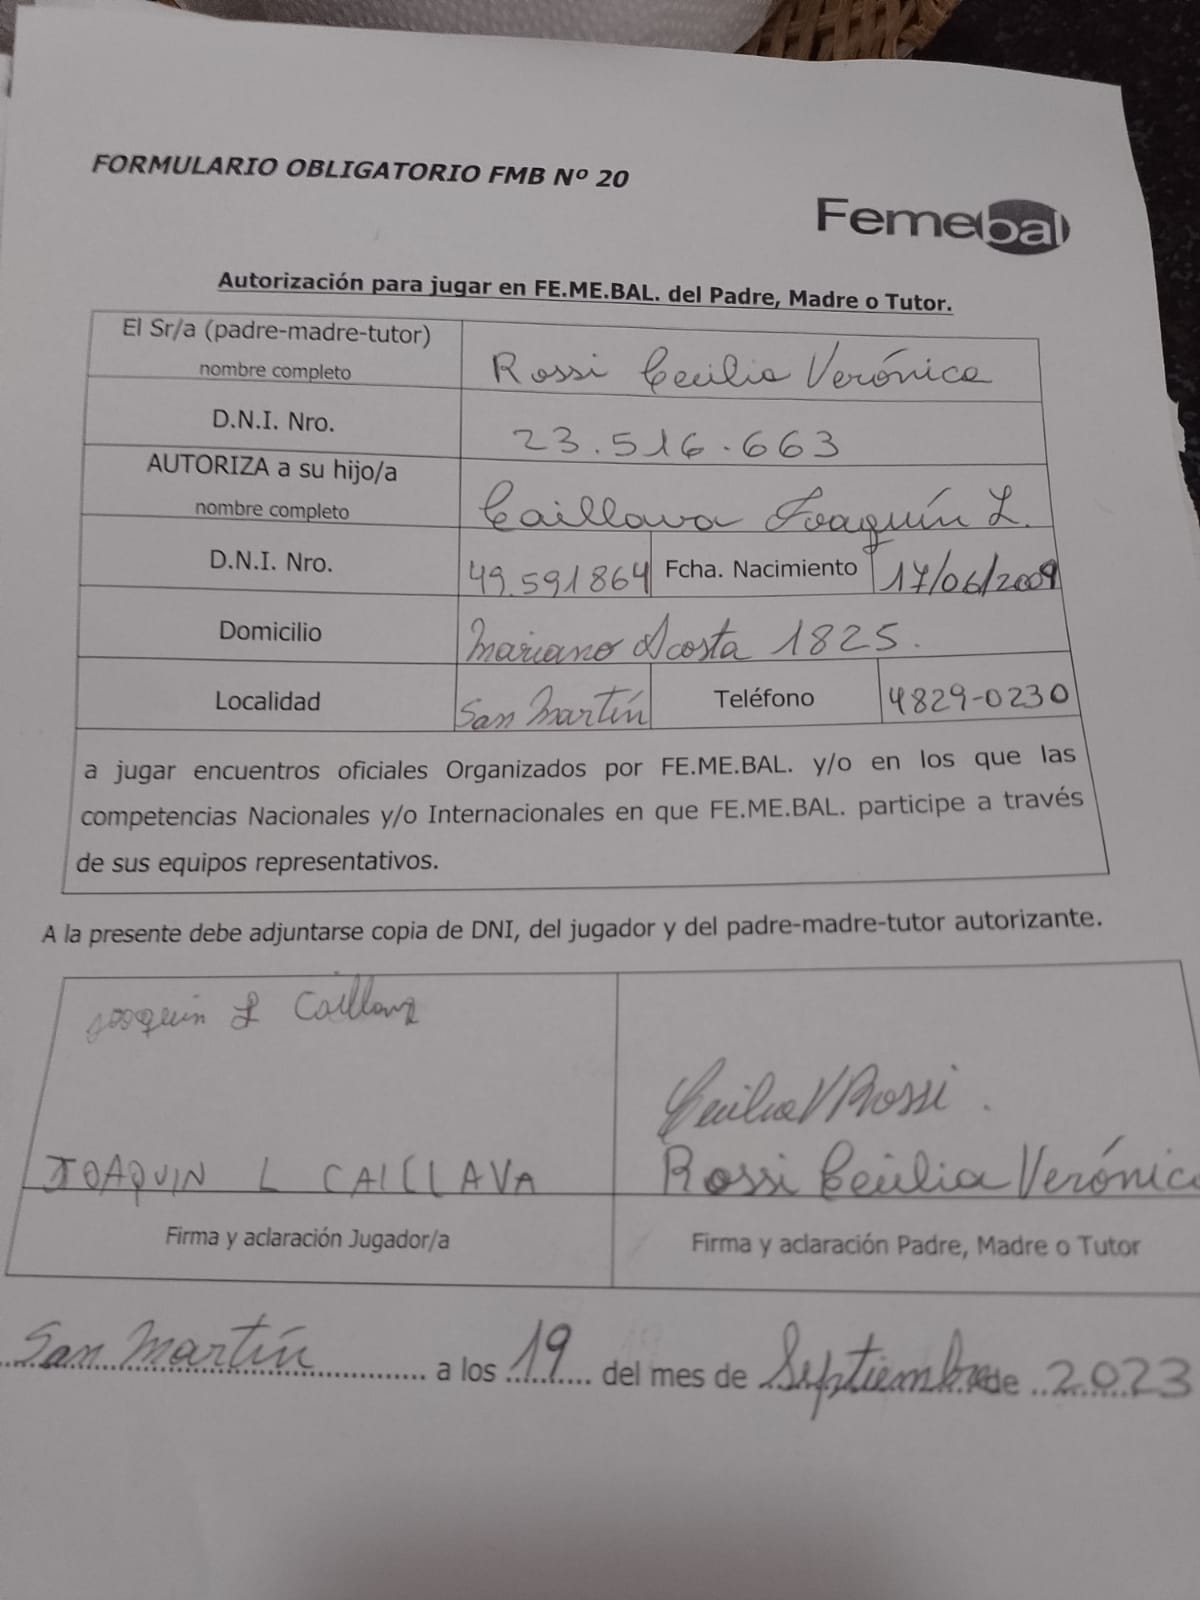 FORMULARIO OBLIGATORIO FMB Nº 20
Femebal
Autorización para jugar en FE.ME.BAL. del Padre, Madre o Tutor.
El Sr/a (padre-madre-tutor)
nombre completo
Rossi Cecilia Verónica
D.N.I. Nro.
23.516.663
AUTORIZA a su hijo/a
nombre completo
Caillava Joaquín L.
D.N.I. Nro.
49.591864
Fcha. Nacimiento
17/06/2009
Domicilio
Mariano Acosta 1825.
Localidad
San Martín
Teléfono
4829-0230
a jugar encuentros oficiales Organizados por FE.ME.BAL. y/o en los que las
competencias Nacionales y/o Internacionales en que FE.ME.BAL. participe a través
de sus equipos representativos.
A la presente debe adjuntarse copia de DNI, del jugador y del padre-madre-tutor autorizante.
Joaquin L Caillava
JOAQUIN L CAILLAVA
Firma y aclaración Jugador/a
Cecilia V Rossi.
Rossi Cecilia Verónica
Firma y aclaración Padre, Madre o Tutor
San Martín a los 19 del mes de Septiembre de 2023